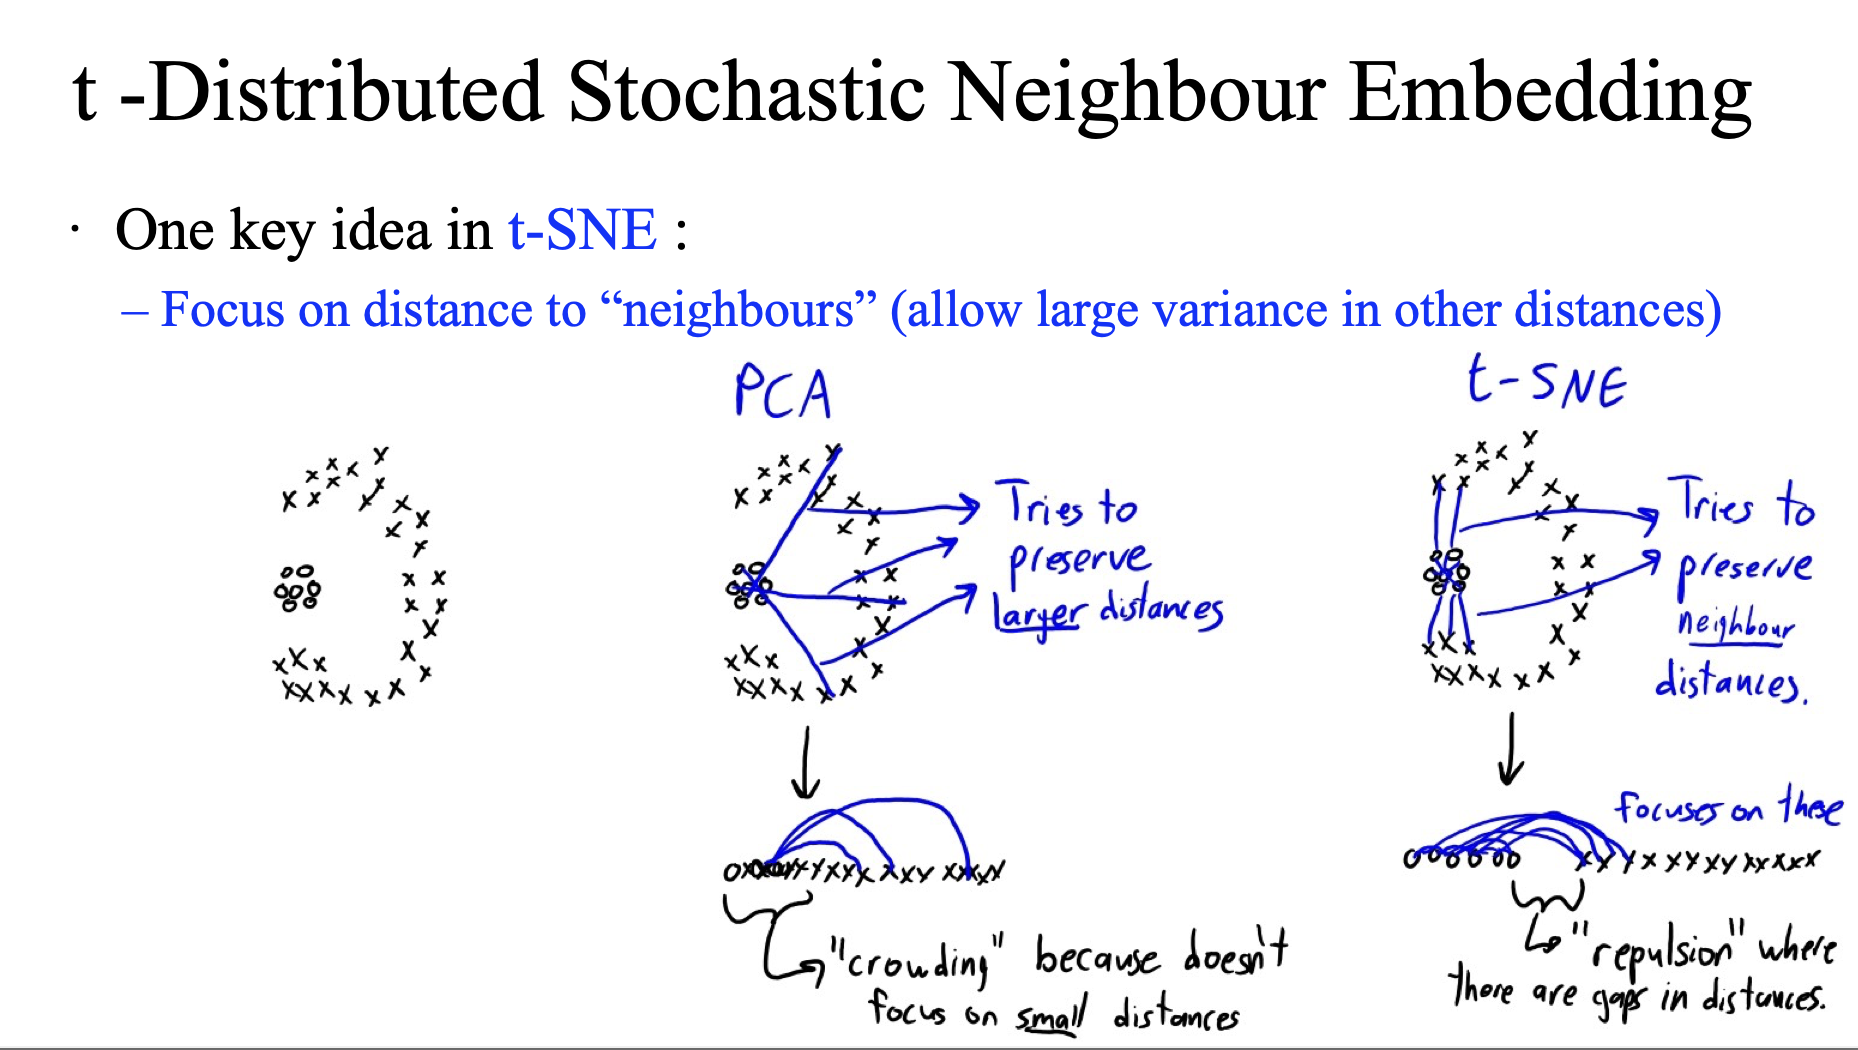 t -Distributed Stochastic Neighbour Embedding
· One key idea in t-SNE :
– Focus on distance to “neighbours” (allow large variance in other distances)
PCA
Tries to
preserve
larger distances
"crowding" because doesn't
focus on small distances
t-SNE
Tries to
preserve
neighbour
distances.
focuses on these
"repulsion" where
there are gaps in distances.